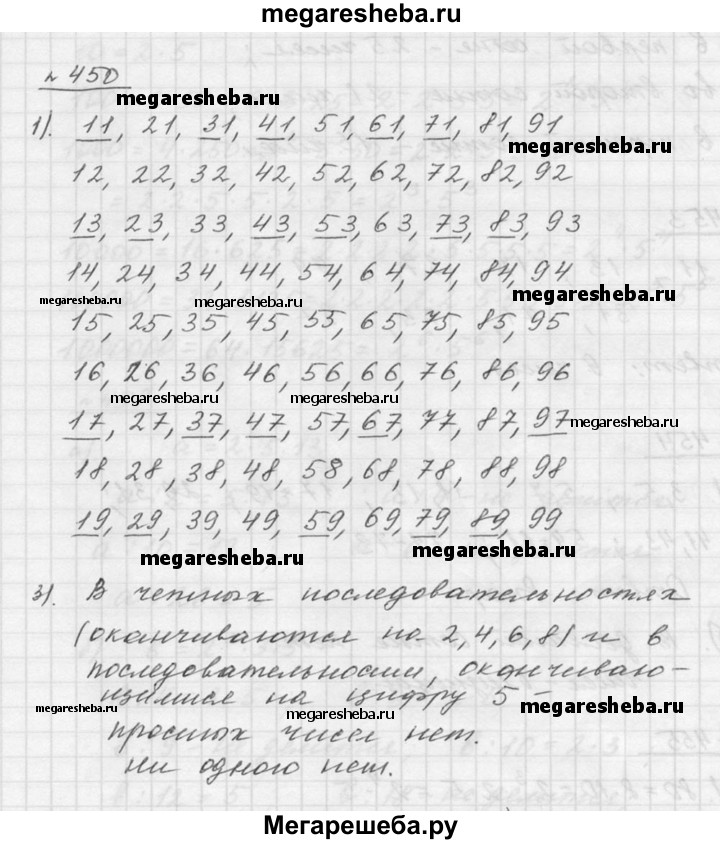 megaresheba.ru
№ 450
megaresheba.ru
1). 11, 21, 31, 41, 51, 61, 71, 81, 91
megaresheba.ru
12, 22, 32, 42, 52, 62, 72, 82, 92
13, 23, 33, 43, 53, 63, 73, 83, 93
14, 24, 34, 44, 54, 64, 74, 84, 94
megaresheba.ru megaresheba.ru megaresheba.ru
15, 25, 35, 45, 55, 65, 75, 85, 95
16, 26, 36, 46, 56, 66, 76, 86, 96
megaresheba.ru megaresheba.ru
17, 27, 37, 47, 57, 67, 77, 87, 97
megaresheba.ru
18, 28, 38, 48, 58, 68, 78, 88, 98
19, 29, 39, 49, 59, 69, 79, 89, 99
megaresheba.ru megaresheba.ru
3). В четных последовательностях
(оканчиваются на 2, 4, 6, 8) и в
последовательности, оканчиваю-
щимися на цифру 5 -
megaresheba.ru megaresheba.ru
простых чисел нет.
megaresheba.ru
Ни одного нет.
Мегарешеба.ру